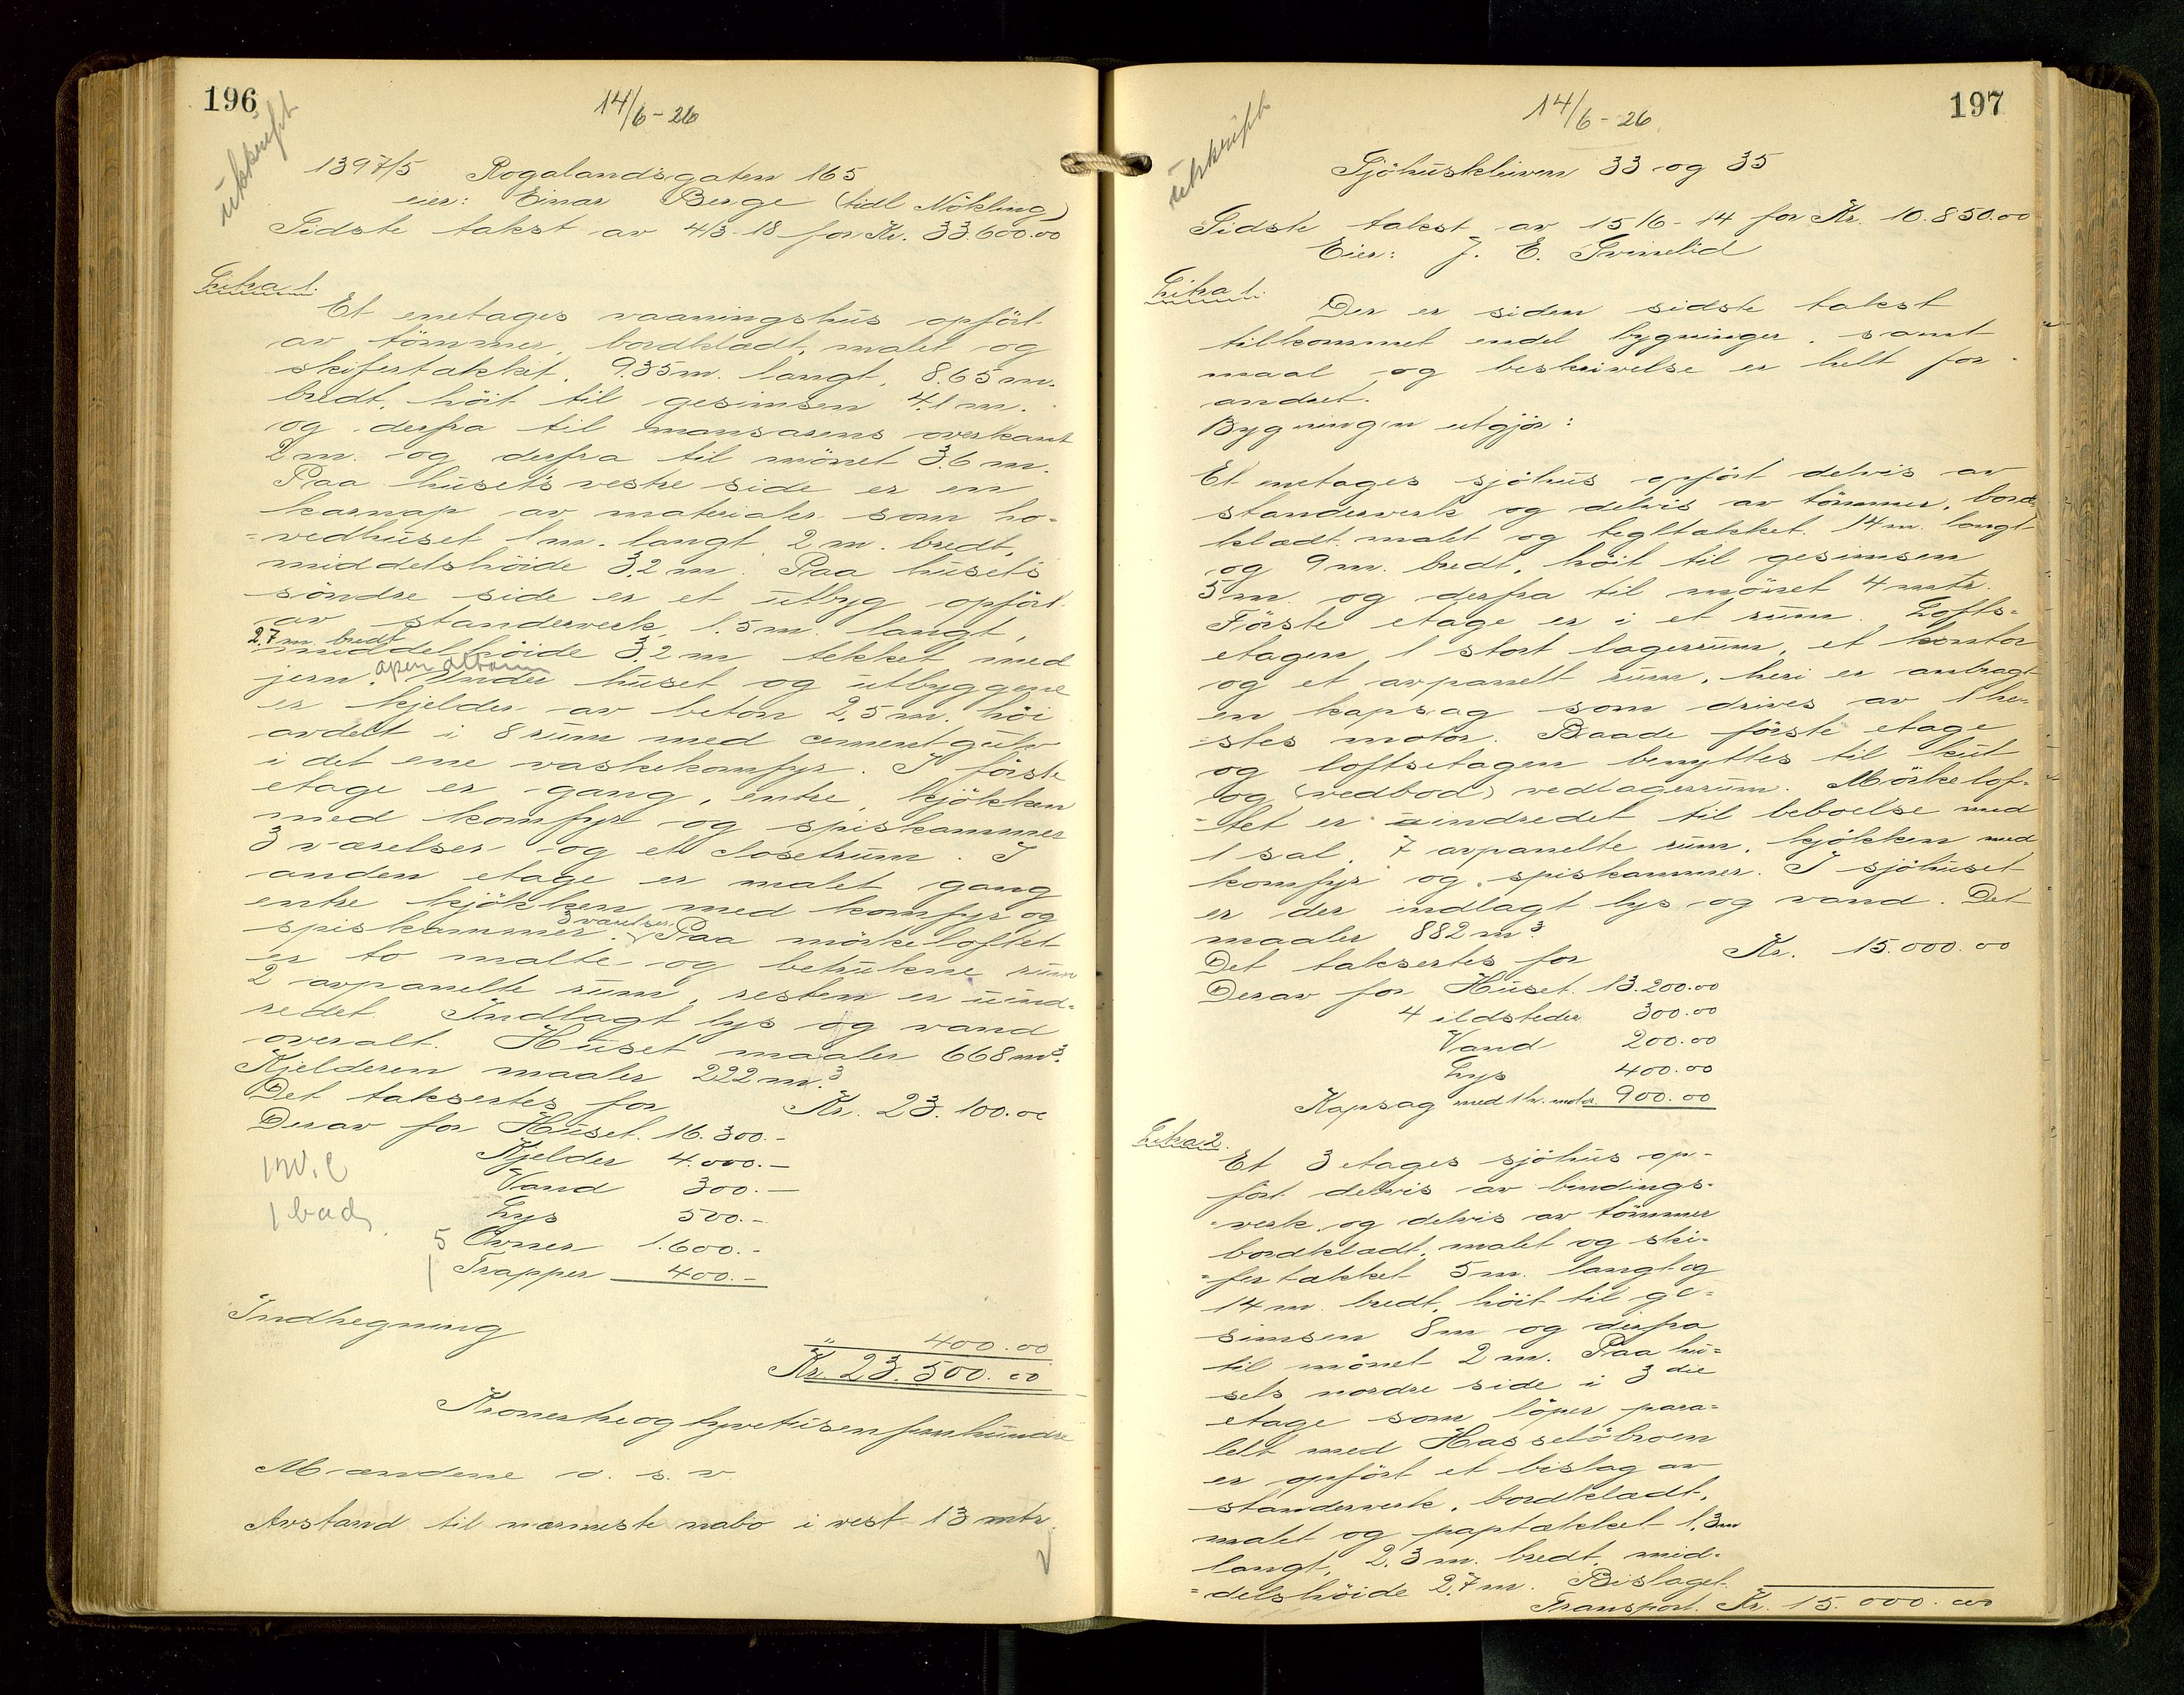 196
14/6-26
utskrift
1397/5 Rogalandsgaten 165
eier: Einar Berge (tidl Nökling)
Sidste takst av 4/3-18 for Kr. 33.600.00
Litra 1.
Et enetages vaaningshus opfört
av tömmer, bordklædt, malet og
skifertækket. 9.35 m. langt, 8.65 m.
bredt, höit til gesimsen 4.1 m.
og derfra til mansarens overkant
2 m. og derfra til mönet 3.6 m.
Paa husets vestre side er en
karnap av materialer som ho-
=vedhuset 1 m. langt 2 m. bredt,
middelshöide 3.2 m. Paa husets
söndre side er et utbyg opfört
av standerverk, 1.5 m. langt,
2.7 m. bredt
middelhöide 3.2 m tekket med
jern. apen altan Under huset og utbyggene
er kjelder av beton 2.5 m. höi
avdelt i 8 rum med cementgulv
i det ene vaskekomfyr. I förste
etage er gang, entre, kjökken
med komfyr og spiskammer
3 værelser og et closetrum. I
anden etage er malet gang
entre kjökken med komfyr og
spiskammer. 3 værelser Paa mörkeloftet
er to malte og betrukne rum
2 avpanelte rum, resten er uind-
redet. Indlagt lys og vand
overalt. Huset maaler 668 m³.
Kjelderen maaler 222 m.³
Det taksertes for Kr. 23.100.00
Derav for Huset. 16.300.-
Kjelder 4.000.-
Vand 300.-
Lys 500.-
5 Ovner 1.600.-
1 Trapper 400.-
1 W.C
1 bad
Indhegning " 400.00
Kr. 23.500.00
Kroner treogtyvetusenfemhundre
Mændene o. s. v.
Avstand til nærmeste nabo i vest 13 mtr.
197
14/6-26
utskrift
Sjöhuskleiven 33 og 35
Sidste takst av 15/6-14 for Kr. 10.850.00
Eier: J. E. Svinelid
Litra 1.
Der er siden sidste takst
tilkommet endel bygninger. samt
maal og beskrivelse er helt for-
andret.
Bygningen utgjör:
Et enetages sjöhus opfört delvis av
standerverk og delvis av tömmer, bord-
klædt malet og tegltækket. 14 m. langt
og 9 m. bredt, höit til gesimsen
5 m. og derfra til mönet 4 mtr.
Förste etage er i et rum. Lofts=
etagen 1 stort lagerrum, et kontor
og et avpanelt rum, heri er anbragt
en kapsag som drives av 1 he-
-stes motor. Baade förste etage
og loftsetagen benyttes til kul
og (vedbod) vedlagerrum. Mörkelof-
-tet er uindredet til beboelse med
1 sal, 7 avpanelte rum, kjökken med
komfyr og spiskammer. I sjöhuset
er der indlagt lys og vand. Det
maaler 882 m³.
Det taksertes for Kr. 15.000.00
Derav for Huset. 13.200.00
4 ildsteder 300.00
Vand 200.00
Lys 400.00
Kapsag med 1 h. motor 900.00
Litra 2.
Et 3 etages sjöhus op-
fört delvis av bindings-
-verk og delvis av tömmer
bordklædt, malet og ski-
=fertækket 5 m. langt og
14 m. bredt, höit til ge=
simsen 8 m og derfra
til mönet 2 m. Paa hu=
sets nordre side i 3 die
etage som löper para=
lelt med Hasselöbroen
er opfört et bislag av
standerverk, bordklædt,
malet og paptækket 1.3 m
langt, 2.3 m. bredt, mid-
=delshöide 2.7 m. Bislaget
Transport. Kr. 15.000.00